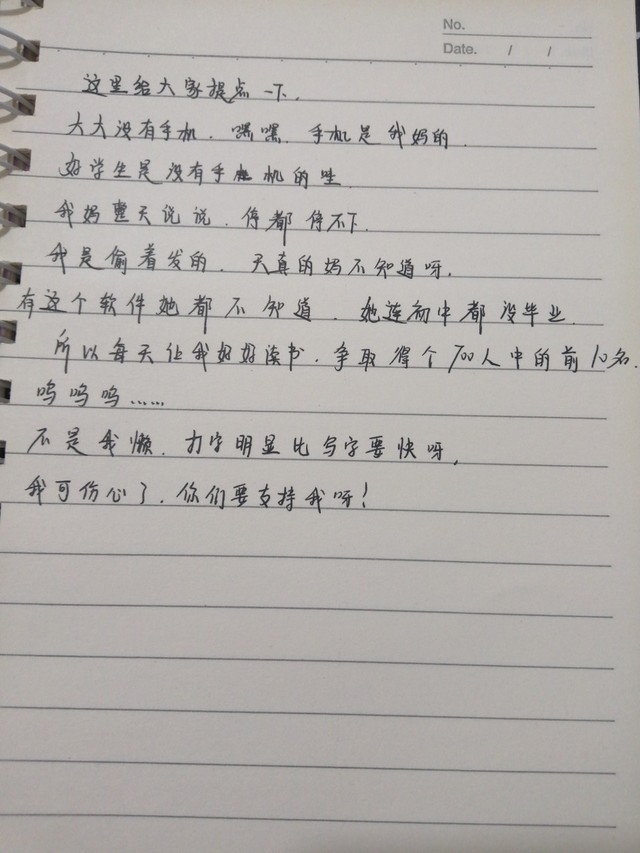 No.
Date. / /
这里给大家提点一下.
大大没有手机.嘿嘿.手机是我妈的.
好学生是没有手机的哇.
我妈整天说说.停都停不下.
我是偷着发的.天真的妈不知道呀.
有这个软件她都不知道.她连初中都没毕业.
所以每天让我好好读书.争取得个700人中的前10名.
呜呜呜……
不是我懒.打字明显比写字要快呀.
我可伤心了.你们要支持我呀!